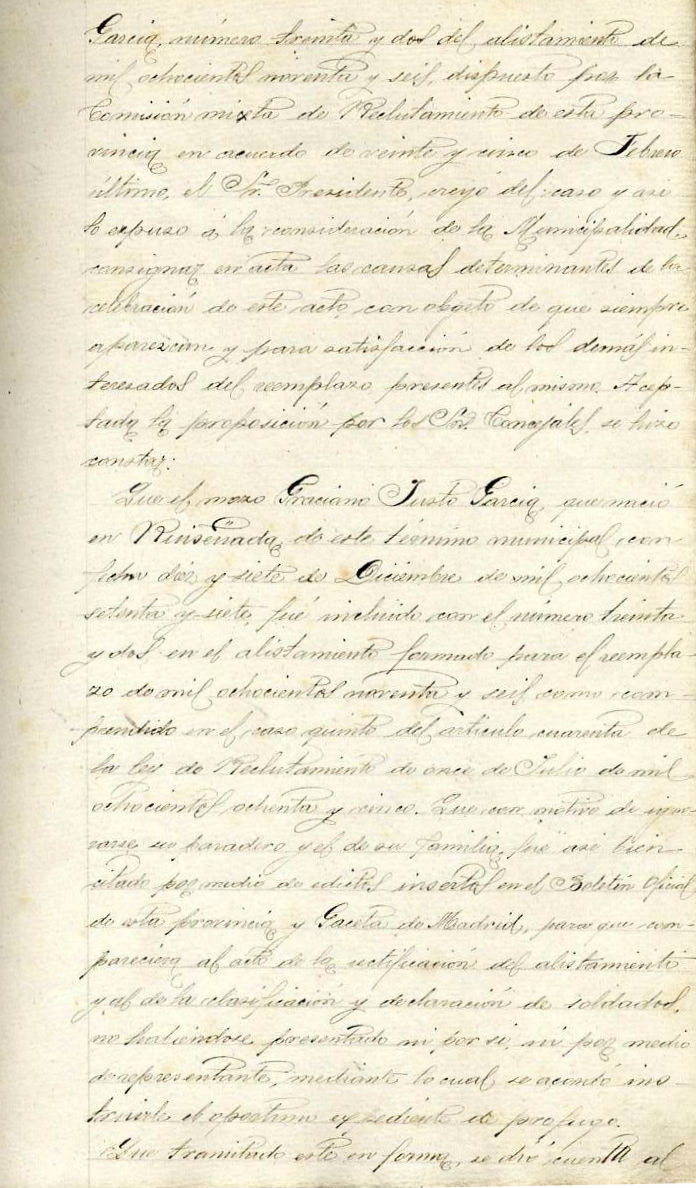 Garcia, número treinta y dos del alistamiento de
mil ochocientos noventa y seis, dispuesto por la
Comisión mixta de Reclutamiento de esta pro-
vincia en acuerdo de veinte y cinco de Febrero
último, el Sr. Presidente, creyó del caso y asi
lo expuso á la consideración de la Municipalidad,
consignar en acta las causas determinantes de la
celebración de este acto, con objeto de que siempre
aparezcan y para satisfacción de los demás in-
teresados del reemplazo presentes al mismo. Acep-
tada la proposición por los Sres. Concejales, se hizo
constar:
Que el mozo Graciano Justo Garcia, que nació
en Ruiseñada, de este término municipal, con
fecha diez y siete de Diciembre de mil ochocientos
setenta y siete, fué incluido con el número treinta
y dos en el alistamiento formado para el reempla-
zo de mil ochocientos noventa y seis como com-
prendido en el caso quinto del artículo cuarenta de
la ley de Reclutamiento de once de Julio de mil
ochocientos ochenta y cinco. Que con motivo de igno-
rarse su paradero y el de su familia, fué asi bien
citado por medio de edictos insertos en el Boletín Oficial
de esta provincia y Gaceta de Madrid, para que com-
pareciera al acto de la rectificación del alistamiento
y al de la clasificación y declaración de soldados,
no habiendose presentado ni por si, ni por medio
de representante, mediante lo cual se acordó ins-
truirle el oportuno expediente de prófugo.
Que tramitado este en forma, se dió cuenta al